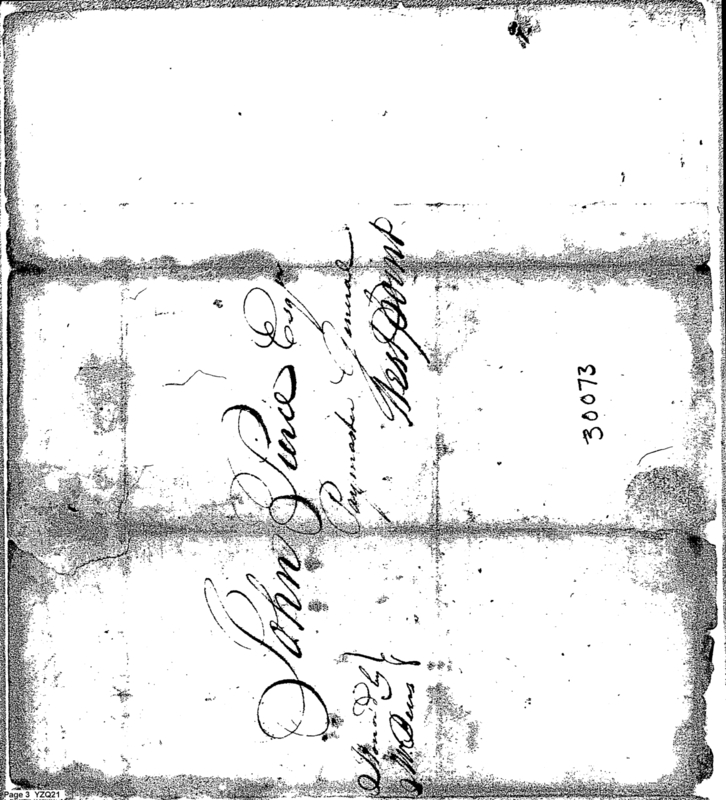 John Pierce Esqr
Paymaster General
West Point
Honour'd by
Mr.
30073
Page 3 YZQ21